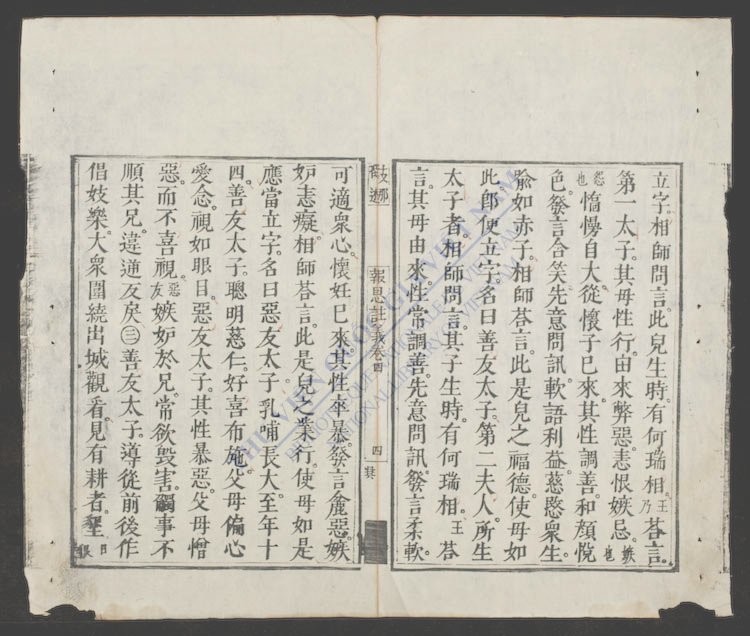 立字。相師問言。此兒生時。有何瑞相。王乃荅言。
第一太子。其母性行。由來弊惡。恚恨嫉忌。嫉也
怨也憍慢自大。從懷子已來。其性調善。和顏悅
色。發言含笑。先意問訊。軟語利益。慈愍衆生。
喻如赤子。相師荅言。此是兒之福德。使母如
此。卽便立字。名曰善友太子。第二夫人。所生
太子者。相師問言。其子生時。有何瑞相。王荅
言。其母由來。性常調善。先意問訊。發言柔軟。
報恩註義卷四
四
可適衆心。懷妊已來。其性卒暴。發言麁惡。嫉
妒恚癡。相師荅言。此是兒之業行。使母如是
應當立字。名曰惡友太子。乳哺長大。至年十
四。善友太子。聰明慈仁。好喜布施。父母偏心
愛念。視如眼目。惡友太子。其性暴惡。父母憎
惡。而不喜視。惡友嫉妒於兄。常欲毀害。觸事不
順其兄。違逆反戾㊂善友太子。導從前後。作
倡妓樂。大衆圍繞。出城觀看。見有耕者。墾
THƯ VIỆN QUỐC GIA VIỆT NAM
BIBLIOTHÈQUE NATIONALE DU VIETNAM
NATIONAL LIBRARY OF VIETNAM